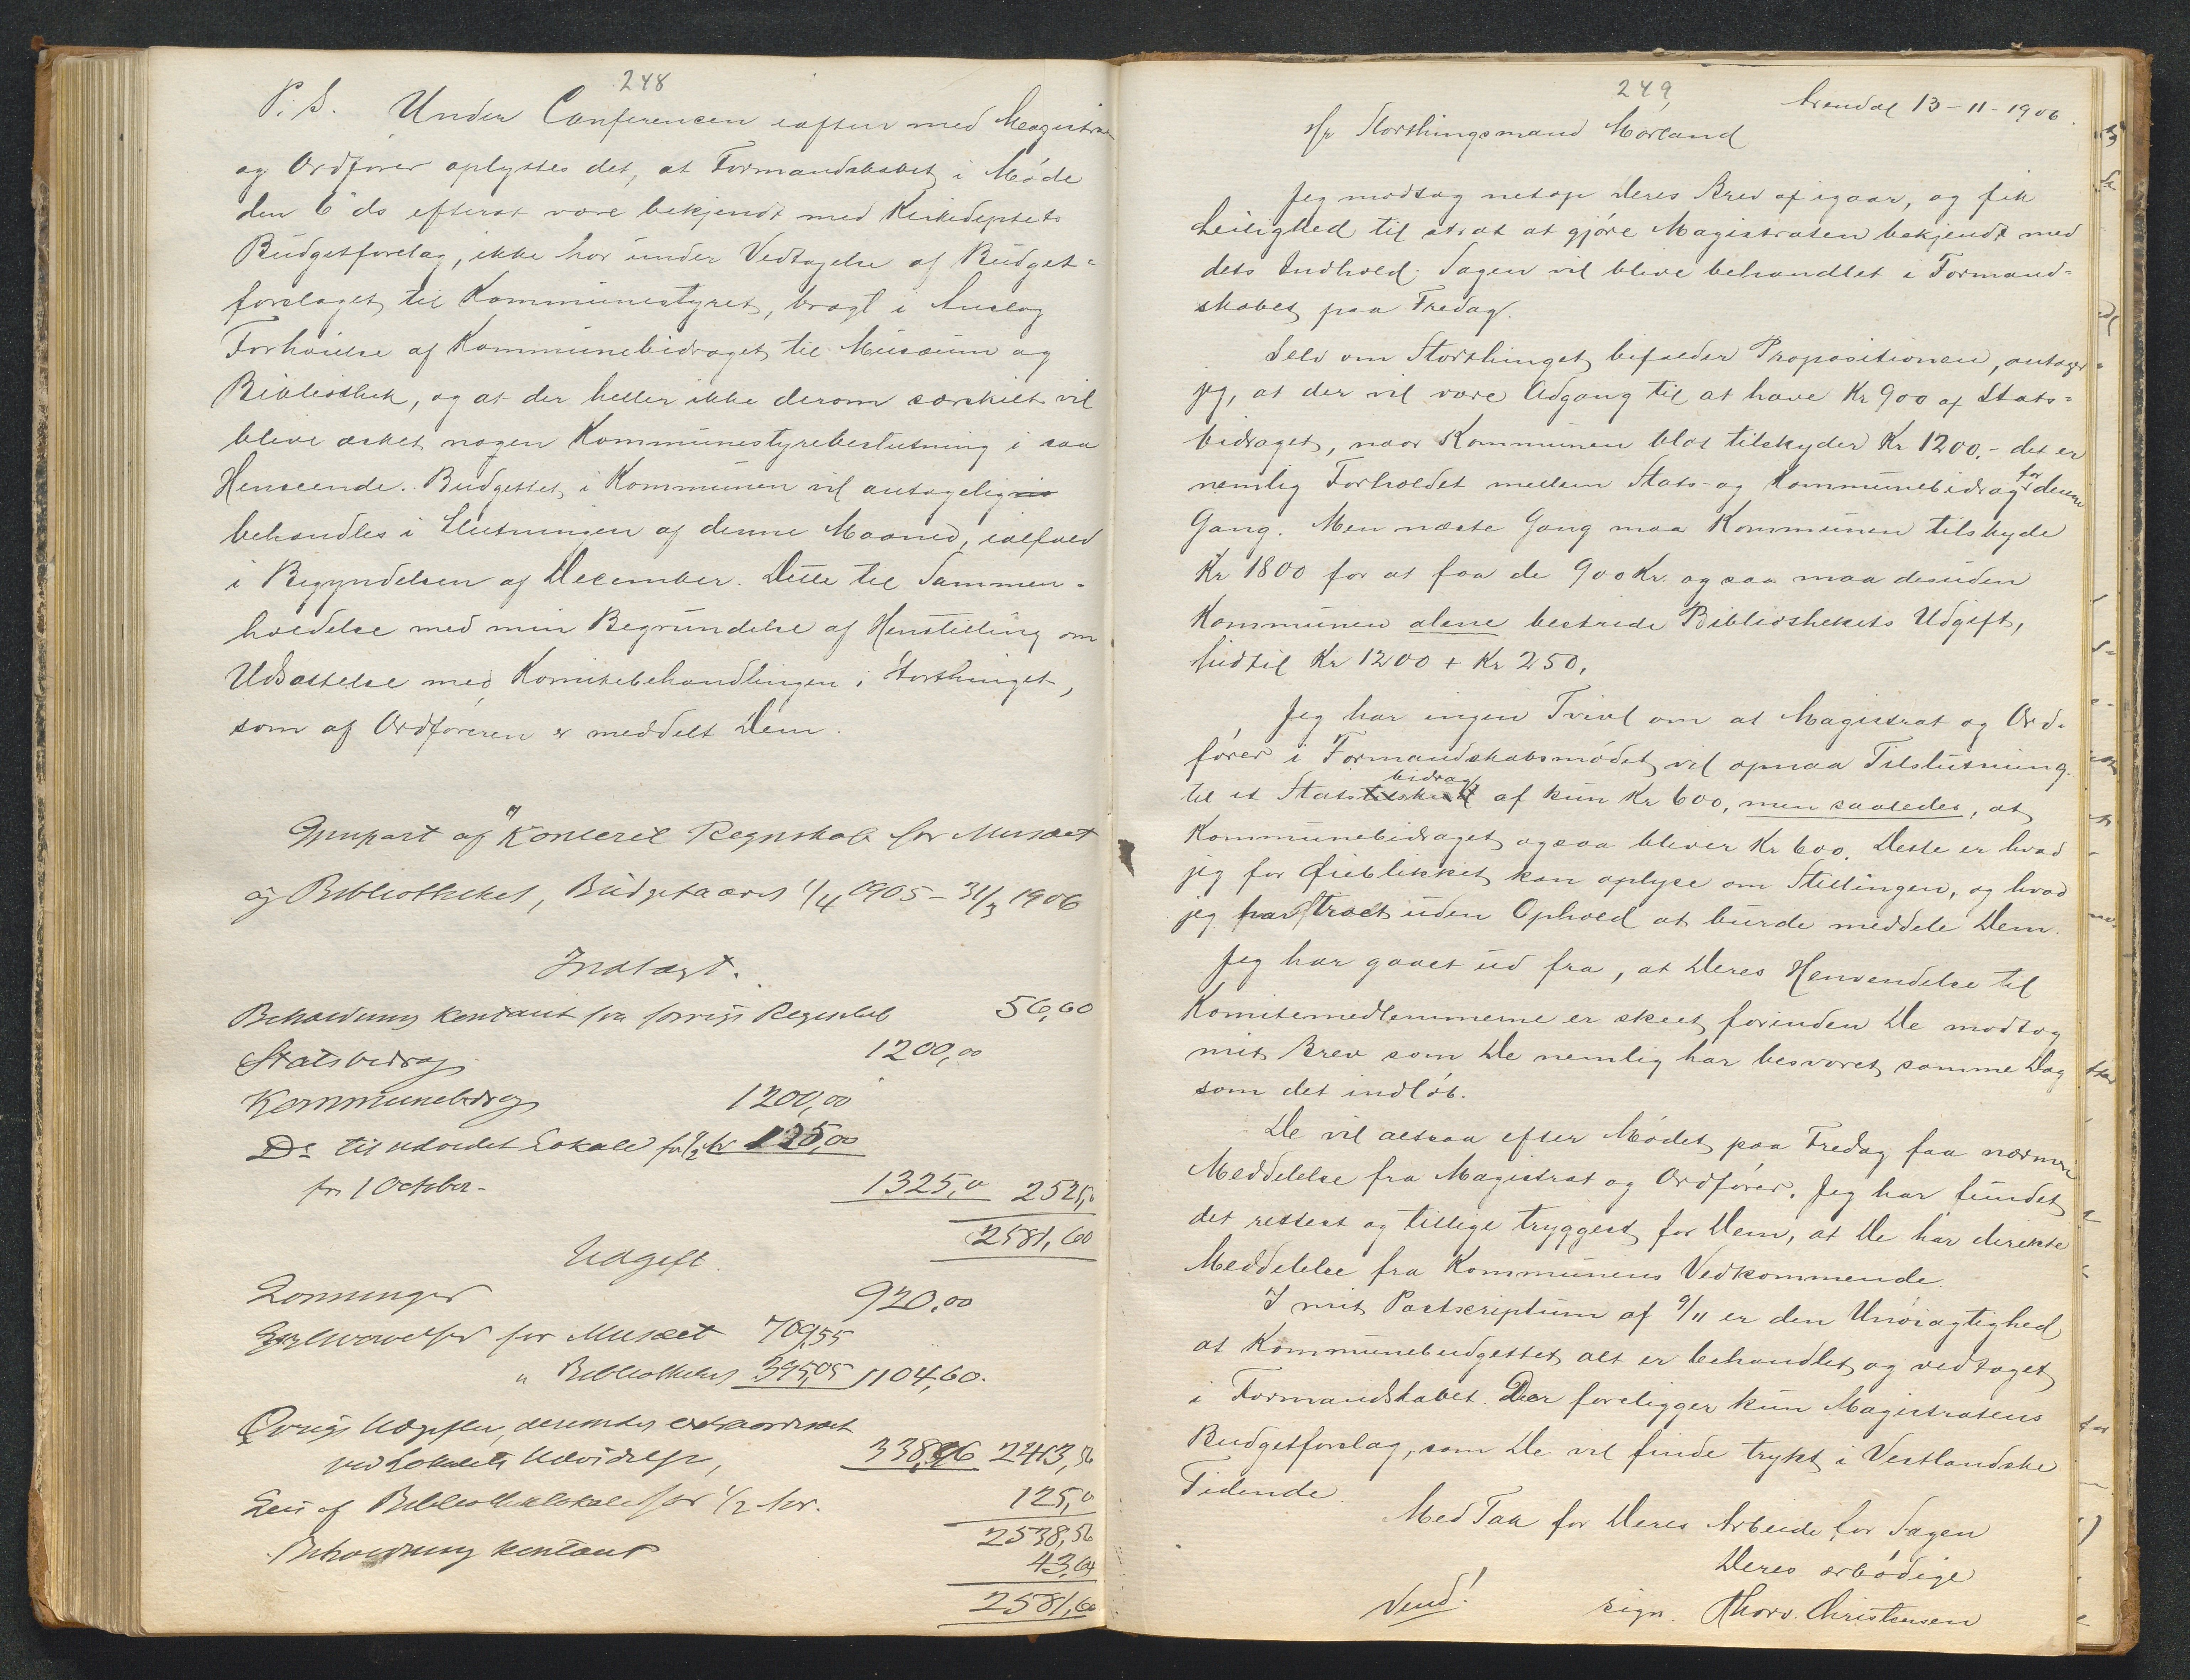 248
P.S. Under Conferencen iaften med Magistraten
og Ordfører oplystes det, at Formandskabet i Møde
den 6te ds efterat være bekjendt med Kirkedeptets
Budgetforslag, ikke har under Vedtagelse af Budget-
forslaget til Kommunestyret, bragt i Anslag
Forhøielse af Kommunebidraget til Musæum og
Bibliothek, og at der heller ikke derom særskilt vil
blive æsket nogen Kommunestyrebeslutning i saa
Henseende. Budgettet i Kommunen vil antagelig
behandles i Slutningen af denne Maaned, ialfald
i Begyndelsen af December. Dette til Sammen-
holdelse med min Begrundelse af Henstilling om
Udsættelse med Komitebehandlingen i Storthinget,
som af Ordføreren er meddelt Dem.
Gjenpart af Regnskab for Musæet
og Bibliotheket, Budgetaaret 1/4 1905 - 31/3 1906
Indtægt.
Beholdning kontant fra forrige Regnskab 56,60
Statsbidrag 1200,00
Kommunebidrag 1200,00
Do til udvidet Lokale for 1/2 Aar 125,00
fra 1 October - 1325,0 2525,0
2581,60
Udgift.
Lønninger 920,00
Erhvervelser for Musæet 709,55
" Bibliotheket 395,05 1104,60.
Øvrige Udgifter, derunder extraordinært
ved Lokalets Udvidelse, 338,96 2413,56
Leie af Bibliotheklokale for 1/2 Aar. 125,0
2538,56
Beholdning kontant 43,04
2581,60
249
Arendal 13-11-1906.
Hr Storthingsmand Mørland
Jeg modtog netop Deres Brev af igaar, og fik
Leilighed til strax at gjøre Magistraten bekjendt med
dets Indhold. Sagen vil blive behandlet i Formand-
skabet paa Fredag.
Selv om Storthinget bifalder Propositionen, antager
jeg, at der vil være Adgang til at hæve Kr 900 af Stats-
bidraget, naar Kommunen blot tilskyder Kr 1200.- det er
nemlig Forholdet mellem Stats- og Kommunebidrag for denne
Gang. Men næste Gang maa Kommunen tilskyde
Kr 1800 for at faa de 900 Kr. og saa maa desuden
Kommunen alene bestride Bibliothekets Udgift,
hidtil Kr 1200 + Kr 250.
Jeg har ingen Tvivl om at Magistrat og Ord-
fører i Formandskabsmødet vil opnaa Tilslutning
til et Statsbidrag af kun Kr 600, men saaledes, at
Kommunebidraget ogsaa bliver Kr 600. Dette er hvad
jeg for Øieblikket kan oplyse om Stillingen, og hvad
jeg har troet uden Ophold at burde meddele Dem.
Jeg har gaaet ud fra, at Deres Henvendelse til
Komitemedlemmerne er skeet, forinden De modtog
mit Brev som De nemlig har besvaret samme Dag
som det indløb.
De vil altsaa efter Mødet paa Fredag faa nærmere
Meddelelse fra Magistrat og Ordfører. Jeg har fundet
det rettest og tillige tryggest for Dem, at De har direkte
Meddelelse fra Kommunens Vedkommende.
I mit Postscriptum af 9/11 er den Unøiagtighed
at Kommunebudgettet alt er behandlet og vedtaget
i Formandskabet. Der foreligger kun Magistratens
Budgetforslag, som De vil finde trykt i Vestlandske
Tidende.
Med Tak for Deres Arbeide for Sagen
Deres ærbødige
Vend! sign. Thorv. Christensen